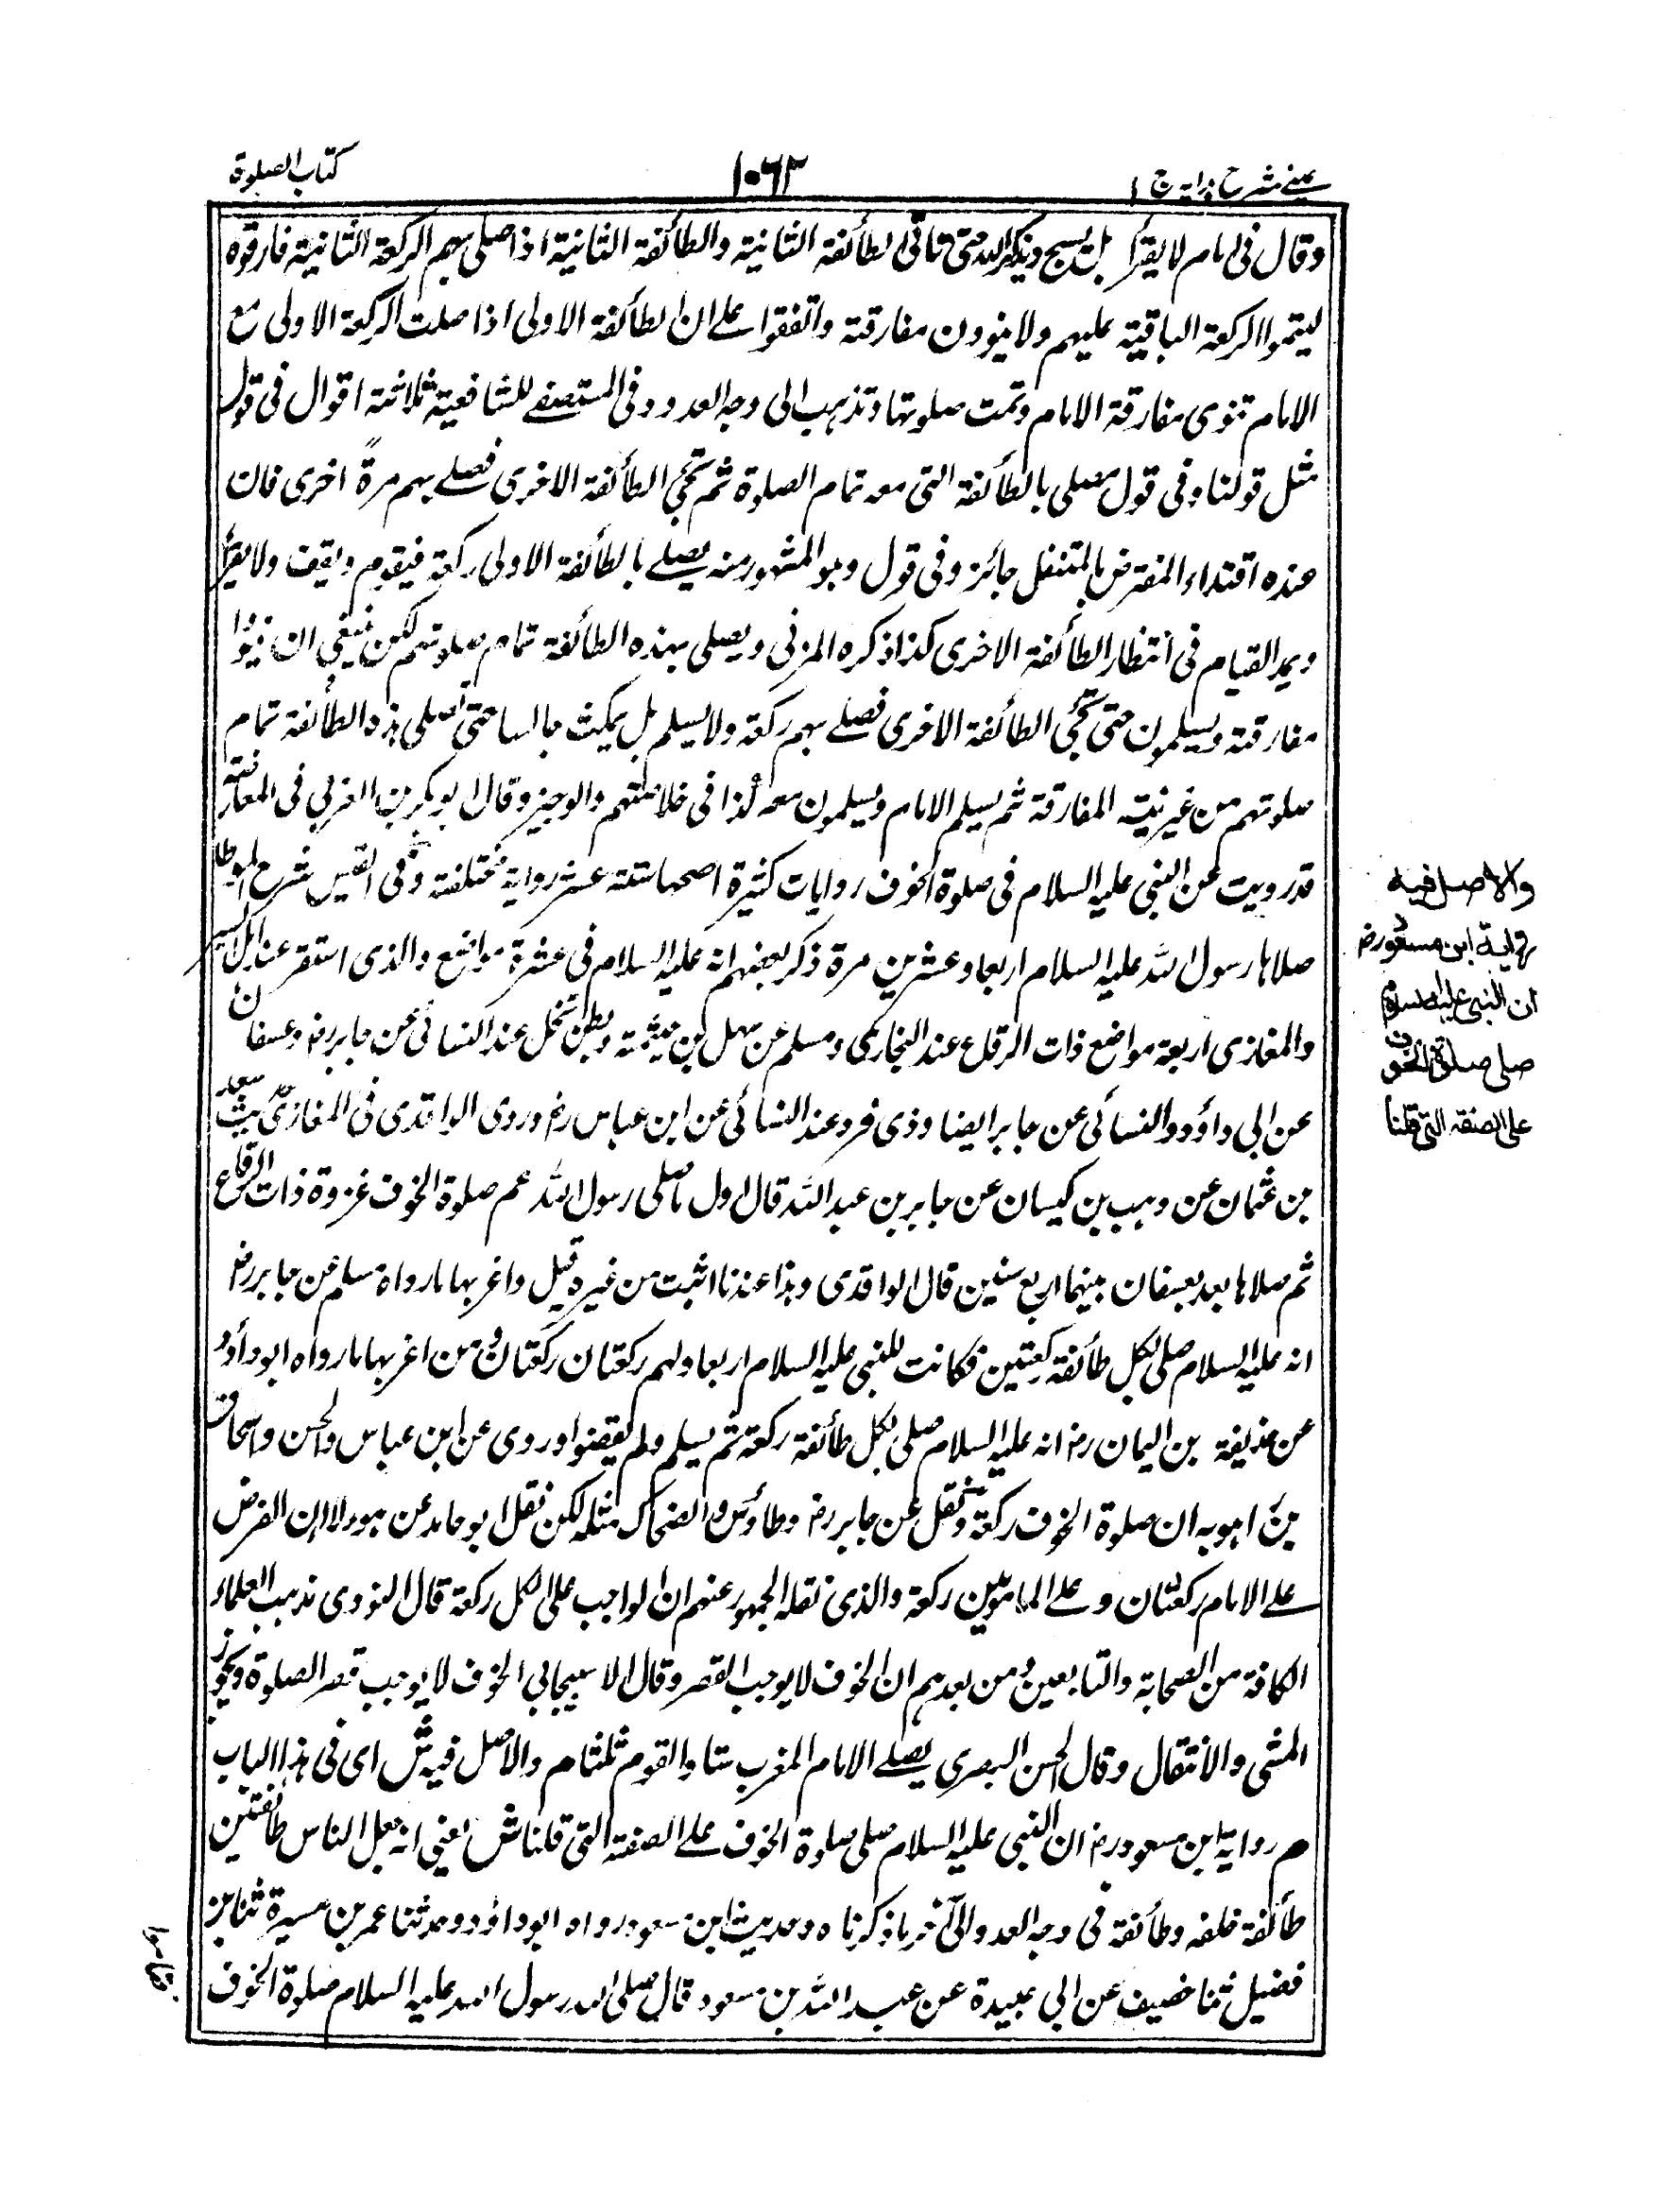 عينى شرح هدايه ج ١
١٠٦٢
كتاب الصلوة
وقال فى الامام لا يقرأ بل يسبح ويذكر الله حتى تأتى الطائفة الثانية والطائفة الثانية اذا صلى بهم الركعة الثانية فارقوه
ليتموا الركعة الباقية عليهم ولا ينوون مفارقته واتفقوا على ان الطائفة الاولى اذا صلت الركعة الاولى مع
الامام تنوى مفارقة الامام وتمت صلوتها وتذهب الى وجه العدو وفى المستصفى للشافعية ثلاثة اقوال فى قول
مثل قولنا وفى قول يصلى بالطائفة التى معه تمام الصلوة ثم تجئ الطائفة الاخرى فصلى بهم مرة اخرى فان
عنده اقتداء المفترض بالمتنفل جائز وفى قول وهو المشهور منه يصلى بالطائفة الاولى ركعة فيقوم ويقف ولا يقرأ
ويمد القيام فى انتظار الطائفة الاخرى كذا ذكره المزنى ويصلى بهذه الطائفة تمام صلوتهم لكن ينبغى ان ينووا
مفارقته ويسلمون حتى تجئ الطائفة الاخرى فصلى بهم ركعة ولا يسلم بل يمكث جالسا حتى تصلى هذه الطائفة تمام
صلوتهم من غير نية المفارقة ثم يسلم الامام ويسلمون معه كذا فى خلاصتهم والوجيز وقال ابو بكر بن العربى فى المعارضة
قد رويت عن النبى عليه السلام فى صلوة الخوف روايات كثيرة اصحها ستة عشر رواية مختلفة وفى القبس شرح الموطا
صلاها رسول الله عليه السلام اربعا وعشرين مرة ذكر بعضهم انه عليه السلام فى عشرة مواضع والذى استقر عند اهل السير
والمغازى اربعة مواضع ذات الرقاع عند البخارى ومسلم عن سهل بن حيثمة وبطن نخل عند النسائى عن جابر رض وعسفان
عن ابى داؤد والنسائى عن جابر ايضا وذى قرد عند النسائى عن ابن عباس رض وروى الواقدى فى المغازى حديث سعد
بن عثمان عن وهب بن كيسان عن جابر بن عبد الله قال اول ما صلى رسول الله عم صلوة الخوف غزوة ذات الرقاع
ثم صلاها بعد بعسفان بينهما اربع سنين قال الواقدى وهذا عندنا اثبت من غيره قيل واغربها ما رواه مسلم عن جابر رض
انه عليه السلام صلى لكل طائفة ركعتين فكانت للنبى عليه السلام اربعا ولهم ركعتان ركعتان ومن اغربها ما رواه ابو داؤد
عن حذيفة بن اليمان رض انه عليه السلام صلى بكل طائفة ركعة ثم يسلم ولم يقضوا وروى عن ابن عباس والحسن واسحاق
بن راهويه ان صلوة الخوف ركعة ونقل عن جابر رض وطاؤس والضحاك مثله لكن نقل ابو حامد عن هؤلاء ان الفرض
على الامام ركعتان وعلى المامومين ركعة والذى نقله الجمهور عنهم ان الواجب على الكل ركعة قال النووى مذهب العلماء
الكافة من الصحابة والتابعين ومن بعدهم ان الخوف لا يوجب القصر وقال الاسبيجابى الخوف لا يوجب قصر الصلوة ويجوز
المشى والانتقال وقال الحسن البصرى يصلى الامام المغرب ستا والقوم ثلثا م والاصل فيه ش اى فى هذا الباب
م رواية ابن مسعود رض ان النبى عليه السلام صلى صلوة الخوف على الصفة التى قلنا ش يعنى انه جعل الناس طائفتين
طائفة خلفه وطائفة فى وجه العدو الى آخر ما ذكرناه وحديث ابن مسعود رواه ابو داؤد وحدثنا عمر بن ميسرة ثنا بن
فضيل ثنا خصيف عن ابى عبيدة عن عبد الله بن مسعود قال صلى لله رسول الله عليه السلام صلوة الخوف
والاصل فيه
رواية ابن مسعود رض
ان النبى عليه السلام
صلى صلوة الخوف
على الصفة التى قلنا
فقاموا